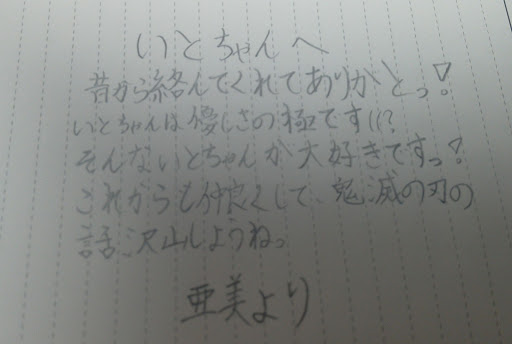 いとちゃんへ
昔から絡んでくれてありがとっ!
いとちゃんは優しさの極です(((?
そんないとちゃんが大好きですっ!
これからも仲良くして、鬼滅の刃の
話、沢山しようねっ
亜美より